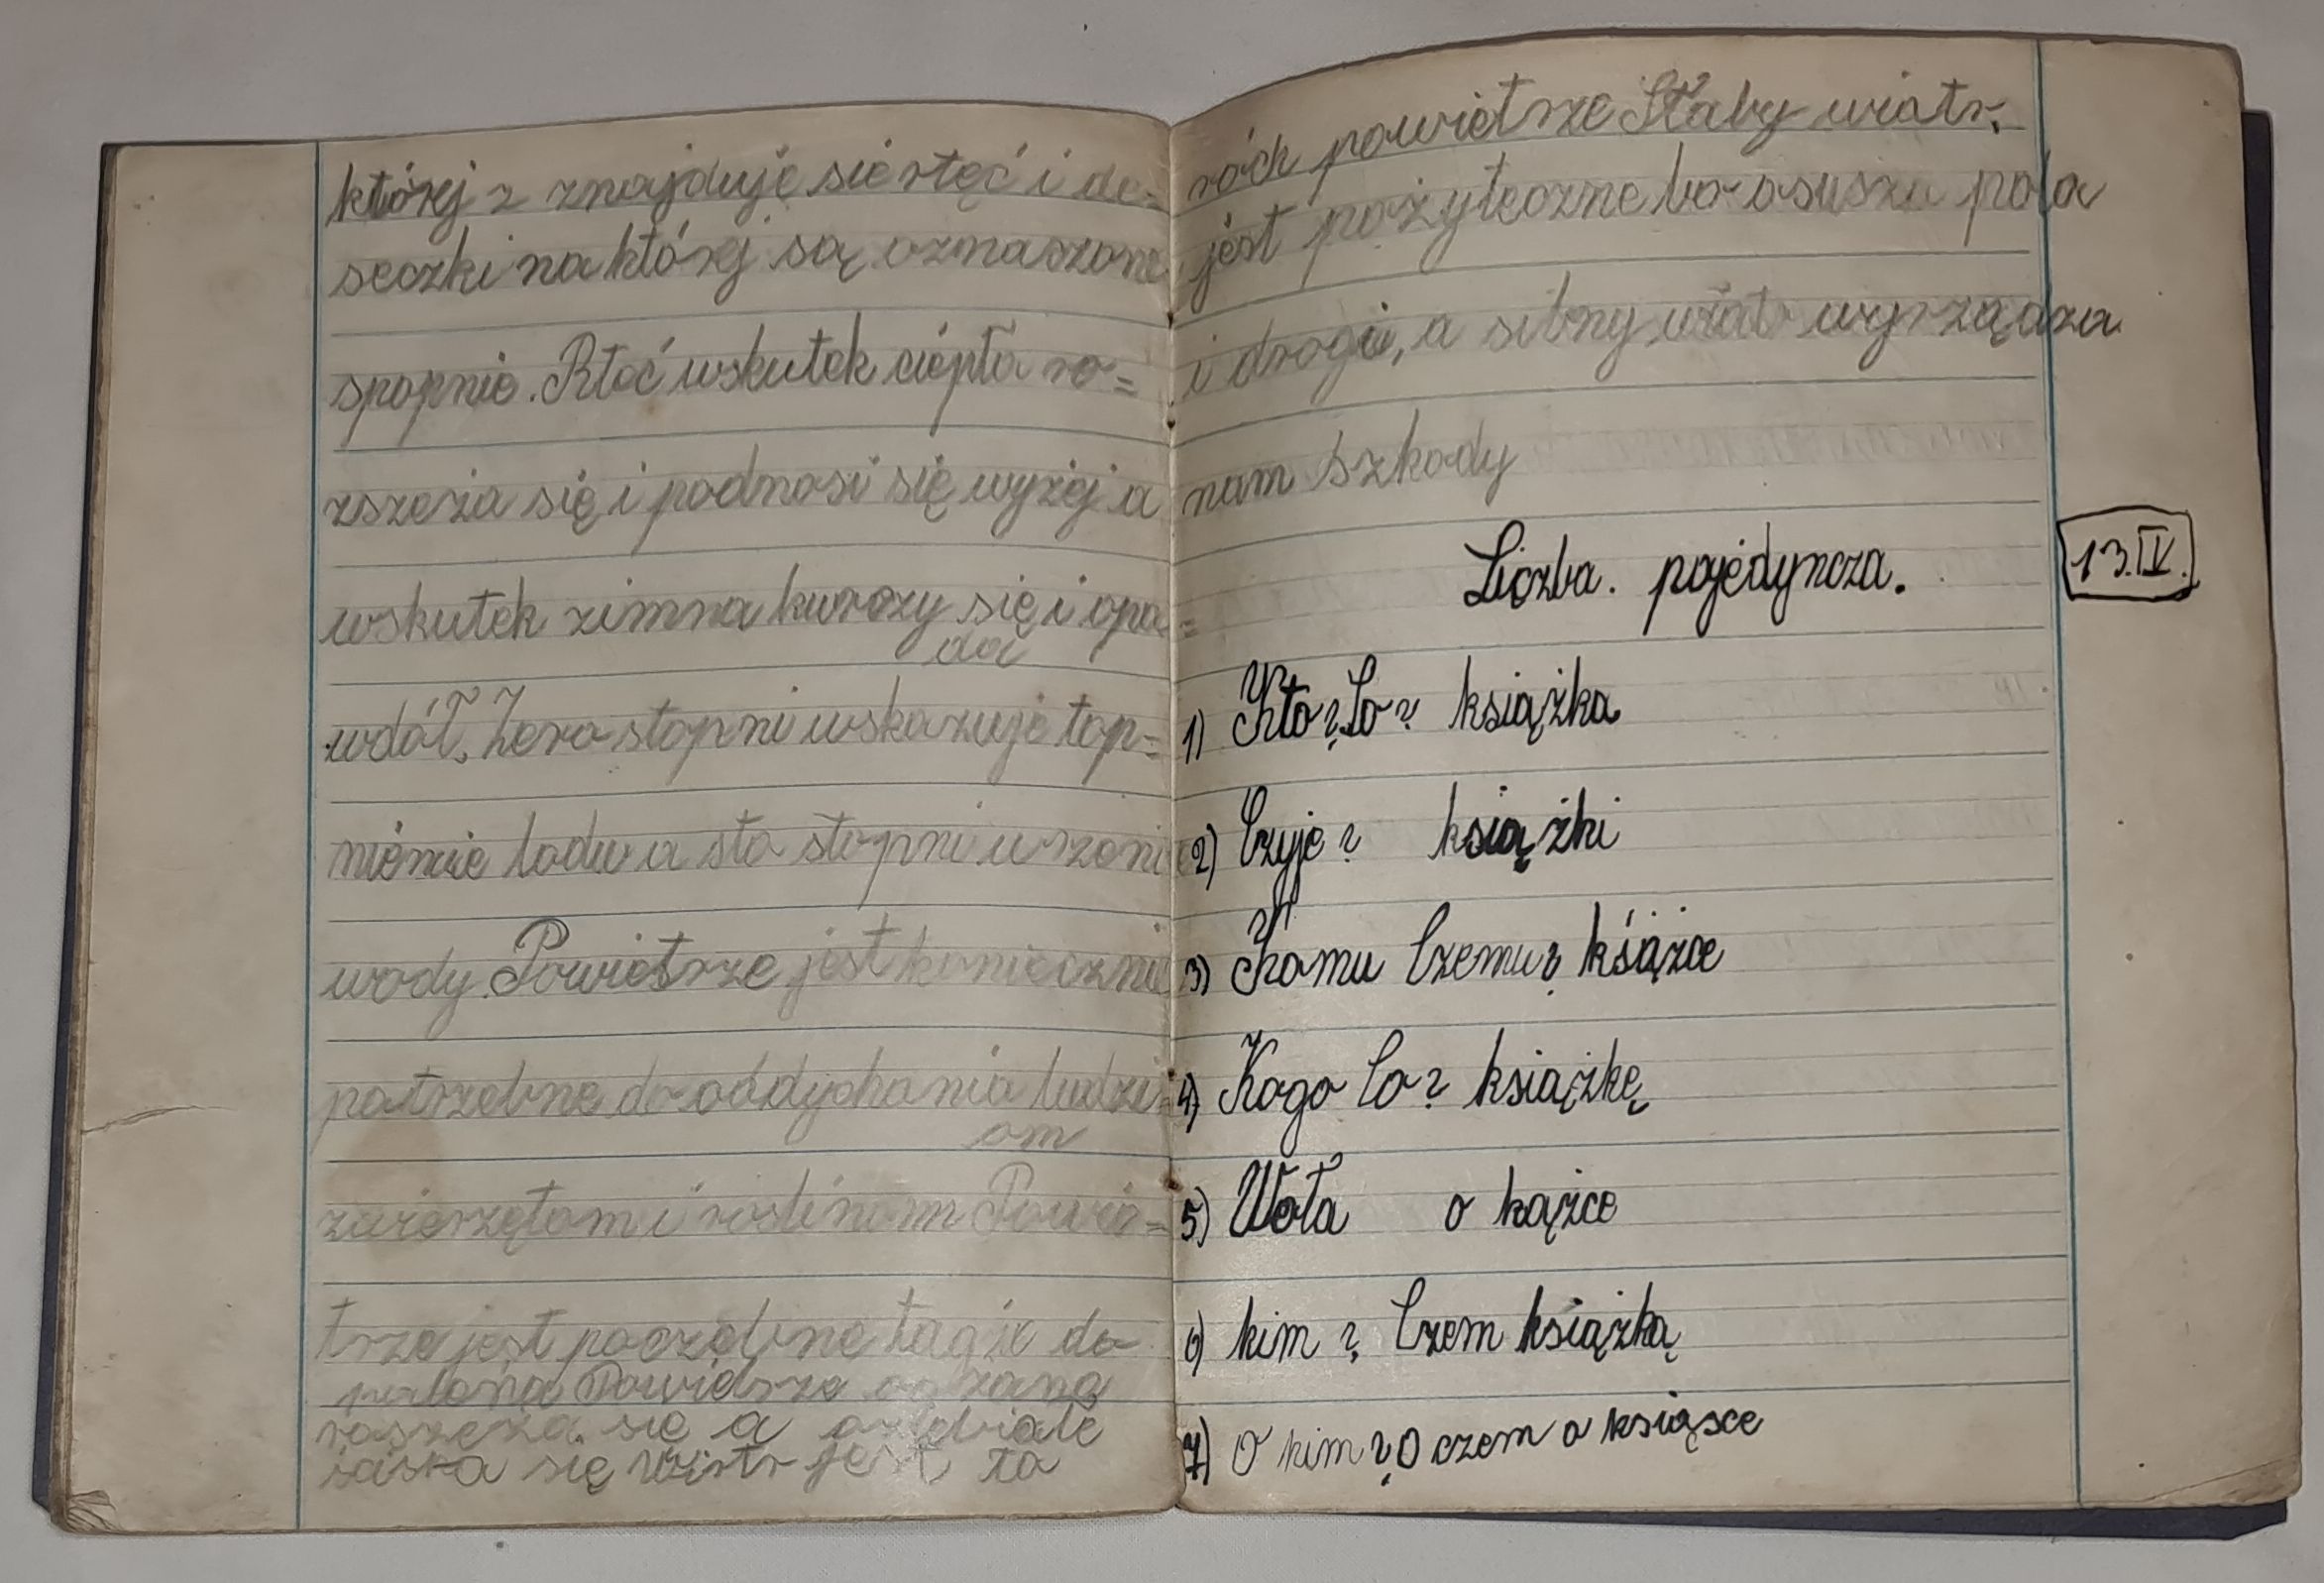 której z znajduję sie rtęć i de-
seczki na której są oznaszone
spopnie. Rteć wskutek ciépła ro=
zszeża się i podnosi się wyżej a
wskutek zimna kurczy się i opa=
da
wdół. Zero stopni wskazuje top=
niénie lodu a sto stopni wrzoni
wody. Powietrze jest koniecznie
potrzebne do oddychania ludzi=
om
zwierzętom i roslinom Powie=
trze jest poczebne tagże do
palenia Powidrze ogzane
roszeża się a
sciska się wiatr jest to
róch powietrze Słaby wiatr.
jest pożyteczne bo osusza pola
i drogie, a silny wiatr wyrządza
nam szkody
Liczba. pojedyncza.
13.IV.
1) Kto? Co? książka
2) Czyje? książki
3) Komu Czemu? książce
4) Kogo Co? książkę
5) Woła o kążce
6) kim? Czem książką
7) O kim? O czem o książsce